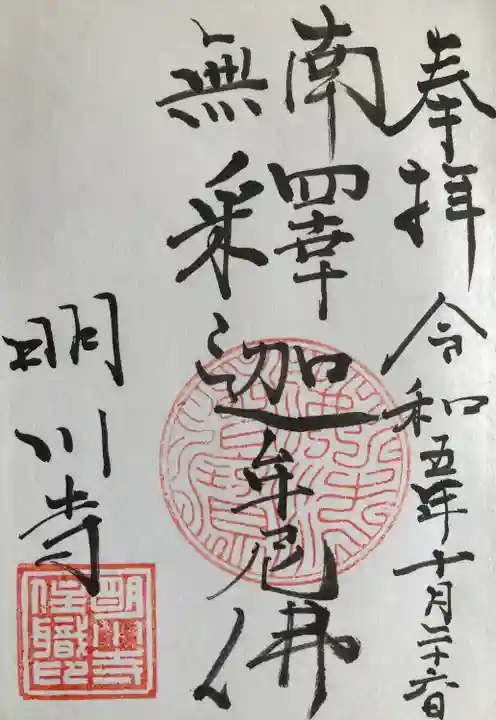 奉拝 令和五年十月二十六日
南無釋迦牟尼佛
明川寺
明川寺住職印